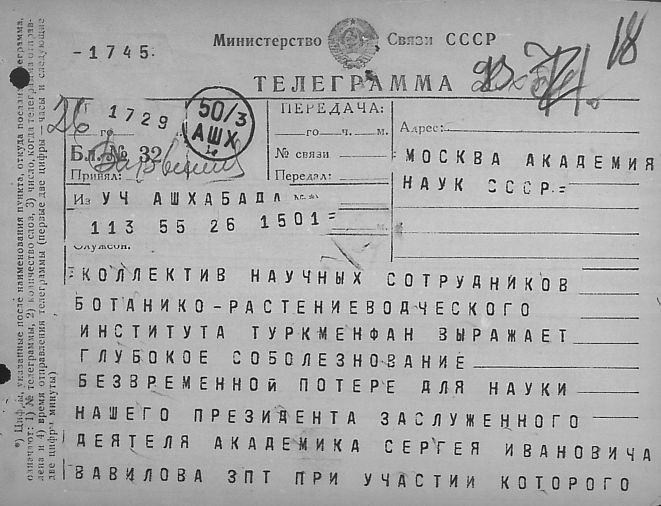 -1745-
Министерство Связи СССР
18
ТЕЛЕГРАММА
26 1729
50/3
АШХ
ПЕРЕДАЧА:
го ч. м.
го
Адрес:
Бл. № 32
№ связи
МОСКВА АКАДЕМИЯ
Принял:
Передал:
НАУК СССР=
Из УЧ АШХАБАДА
113 55 26 1501=
Служебн.
=КОЛЛЕКТИВ НАУЧНЫХ СОТРУДНИКОВ
БОТАНИКО-РАСТЕНИЕВОДЧЕСКОГО
ИНСТИТУТА ТУРКМЕНФАН ВЫРАЖАЕТ
ГЛУБОКОЕ СОБОЛЕЗНОВАНИЕ
БЕЗВРЕМЕННОЙ ПОТЕРЕ ДЛЯ НАУКИ
НАШЕГО ПРЕЗИДЕНТА ЗАСЛУЖЕННОГО
ДЕЯТЕЛЯ АКАДЕМИКА СЕРГЕЯ ИВАНОВИЧА
ВАВИЛОВА ЗПТ ПРИ УЧАСТИИ КОТОРОГО
*) Цифры, указанные после наименования пункта, откуда послана телеграмма,
означают: 1) № телеграммы, 2) количество слов, 3) число, когда телеграмма отправ-
лена и 4) время отправления телеграммы (первые две цифры — часы и следующие
две цифры минуты)